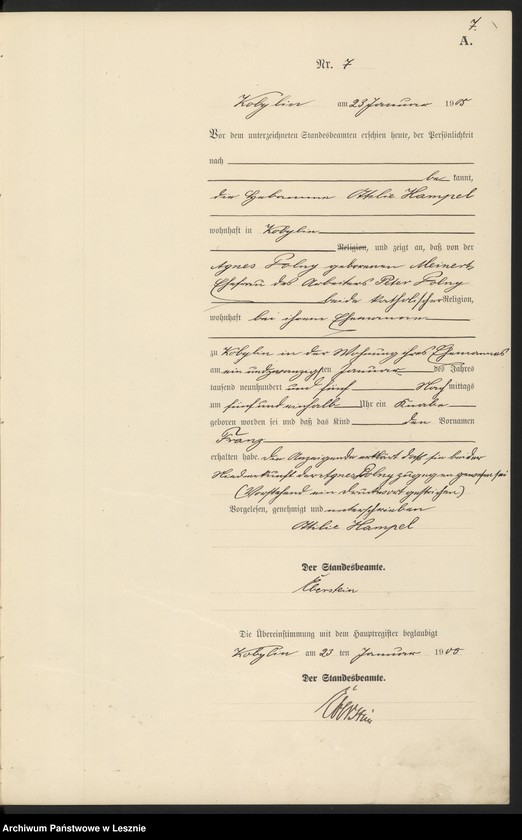 7.
A.
Nr. 7
Kobylin am 23 Januar 1905
Vor dem unterzeichneten Standesbeamten erschien heute, der Persönlichkeit
nach
be kannt,
die Hebamme Ottilie Hampel
wohnhaft in Kobylin
Religion, und zeigt an, daß von der
Agnes Polny geborenen Meinert,
Ehefrau des Arbeiters Peter Polny
beide katholischer Religion,
wohnhaft bei ihrem Ehemanne
zu Kobylin in der Wohnung ihres Ehemannes
am ein und zwanzigsten Januar des Jahres
tausend neunhundert und fünf Nach mittags
um fünf und einhalb Uhr ein Knabe
geboren worden sei und daß das Kind den Vornamen
Franz
erhalten habe. Die Anzeigende erklärt daß sie bei der
Niederkunft der Agnes Polny zugegen gewesen sei
(Vorstehend ein Druckwort gestrichen)
Vorgelesen, genehmigt und unterschrieben
Ottilie Hampel
Der Standesbeamte.
Eberstein
Die Übereinstimmung mit dem Hauptregister beglaubigt
Kobylin am 23 ten Januar 1905
Der Standesbeamte.
Eberstein
Archiwum Państwowe w Lesznie